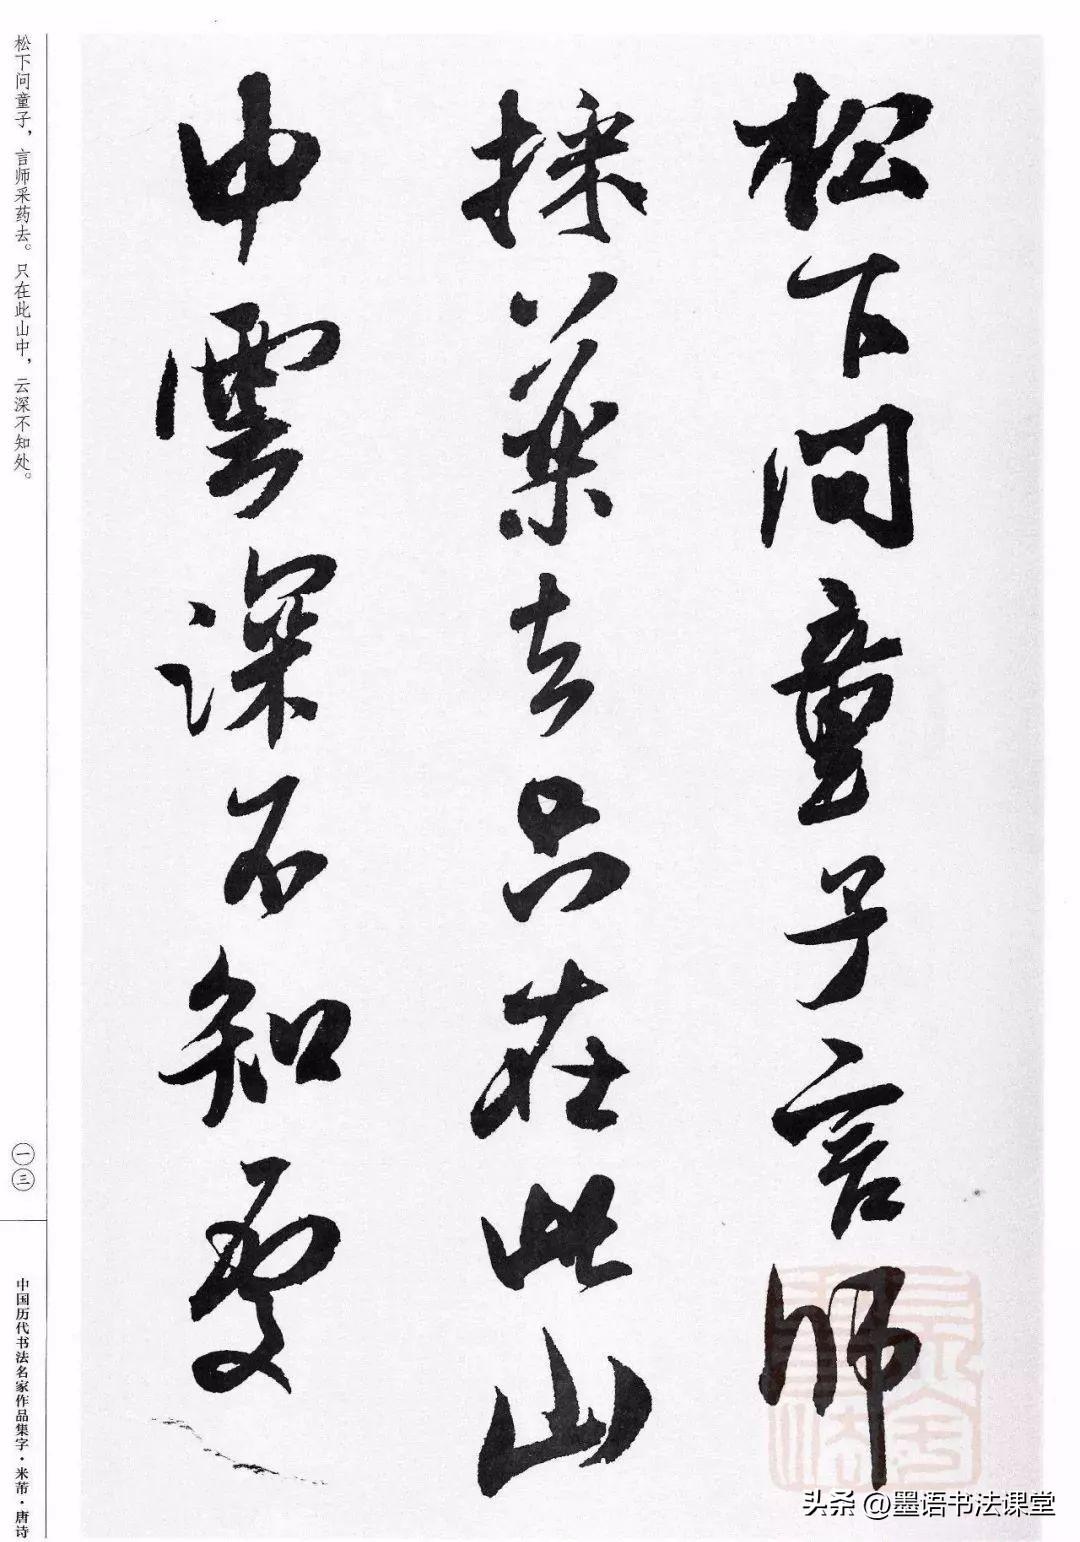 松下问童子言師
採藥去只在此山
中雲深不知處
松下问童子，言师采药去。只在此山中，云深不知处。
一三
中国历代书法名家作品集字·米芾·唐诗
头条 @墨语书法课堂